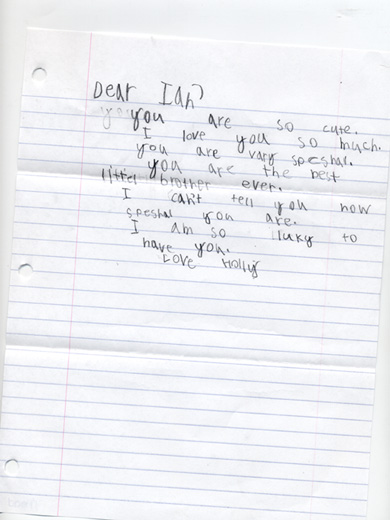 Dear Ian?
you are so cute.
I love you so much.
you are vary speshal.
you are the best
littel brother ever.
I can't tell you how
speshal you are.
I am so luky to
have you.
Love Holly